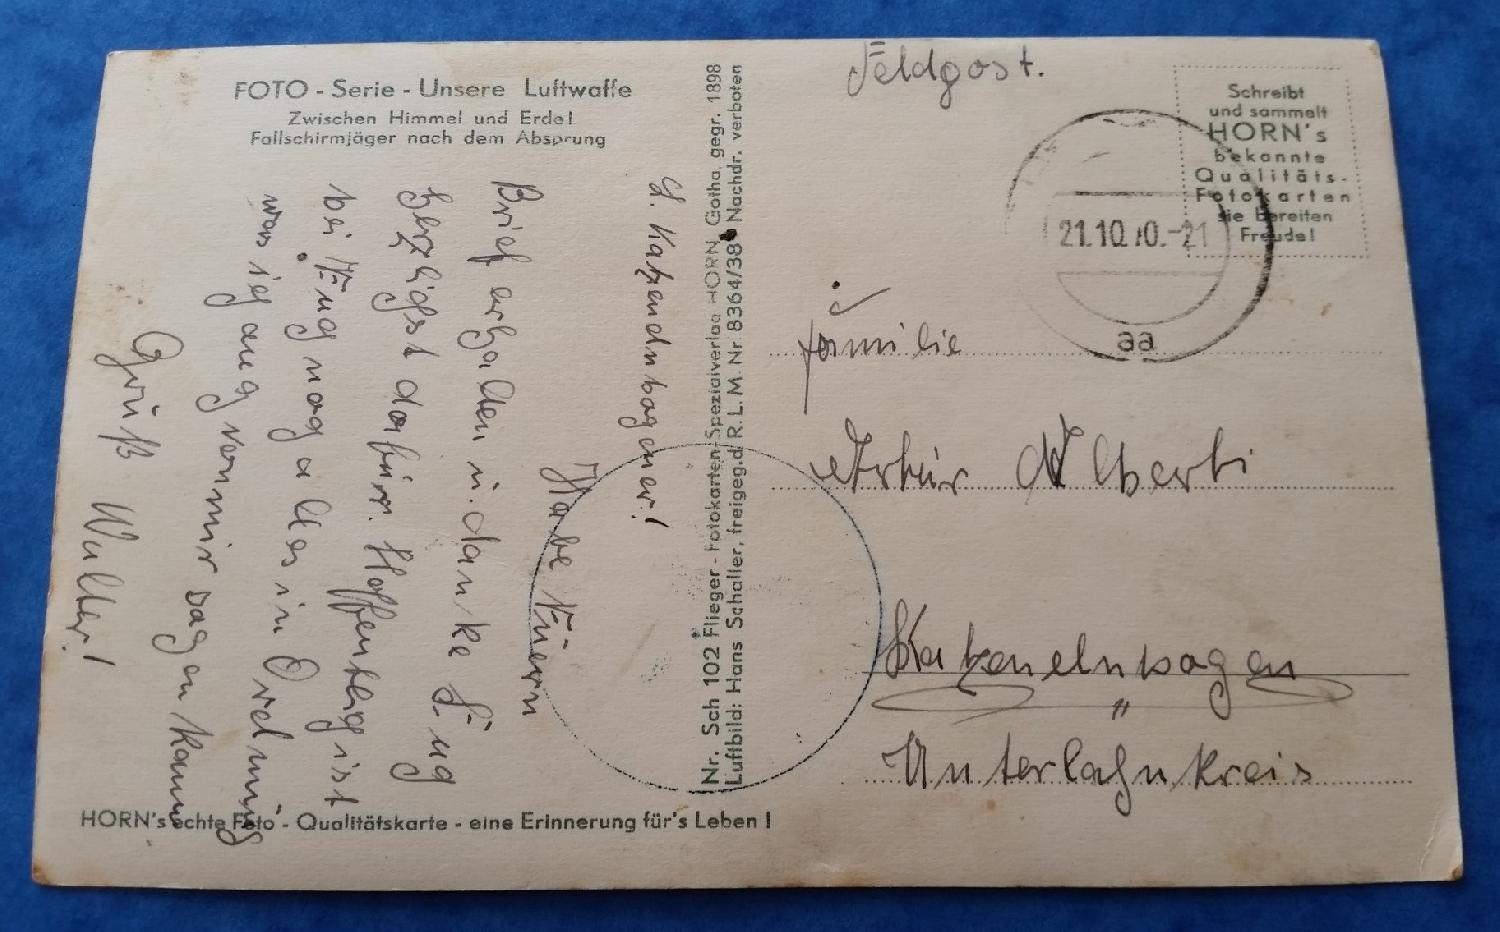 FOTO - Serie - Unsere Luftwaffe
Zwischen Himmel und Erde!
Fallschirmjäger nach dem Absprung
L. Katzendnbogener!
Habe Eueren
Brief erhalten u. danke Eug
herzligst dafür. Hoffentlig ist
bei Eug nog alles in Ordnung
was ig aug von mir sagen kann
Gruß Walter!
HORN's echte Foto - Qualitätskarte - eine Erinnerung für's Leben!
Nr. Sch 102 Flieger-Fotokarten-Spezialverlag HORN, Gotha, gegr. 1898
Luftbild: Hans Schaller, freigeg. d. R. L. M. Nr. 8364/38 Nachdr. verboten
Feldpost.
Schreibt
und sammelt
HORN's
bekannte
Qualitäts-
Fotokarten
sie bereiten
Freude!
21.10. 0.-21
aa
Familie
Artur Alberti
Katzenelnbogen
Unterlahnkreis